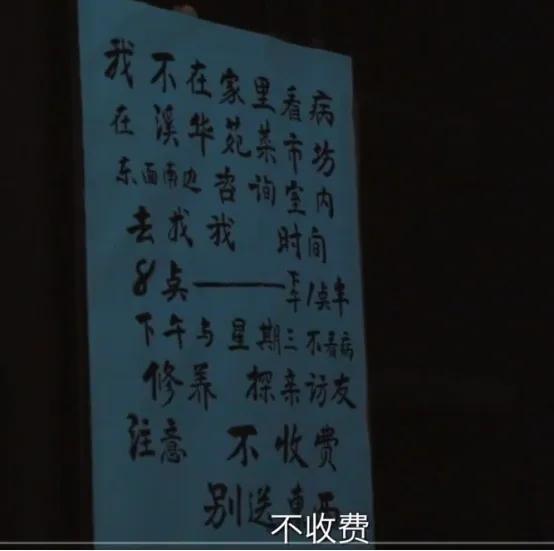 我不在家里看病
在溪华苑菜市坊
东面南边咨询室内
去找我 时间
8点——下午1点半
下午与星期三不看病
修养 探亲访友
注意 不收费
别送东西
不收费